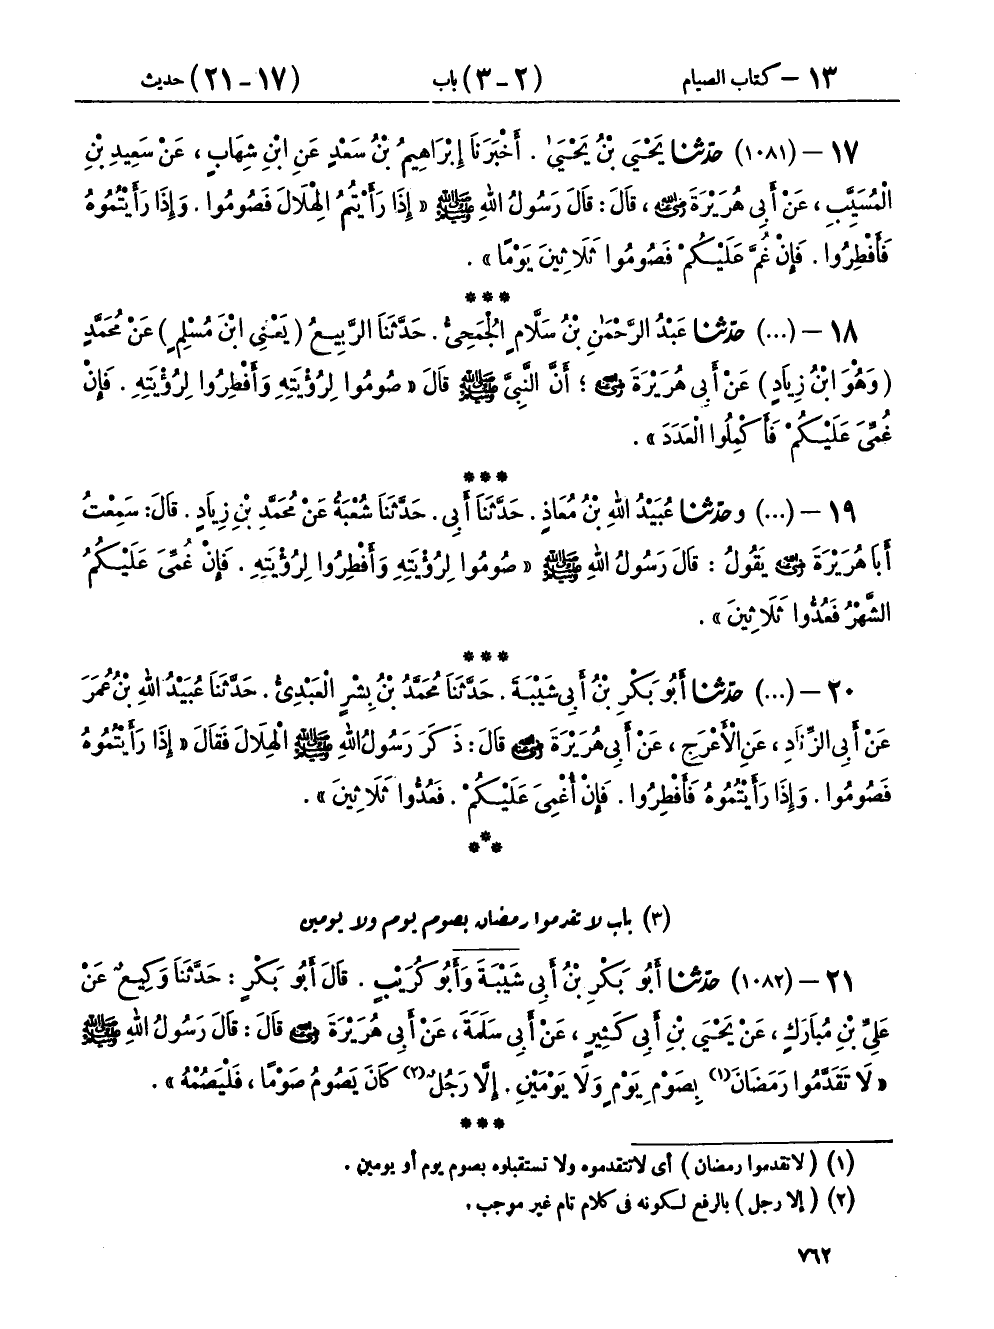 ١٣ – كتاب الصيام (٢ – ٣) باب (١٧ – ٢١) حديث
١٧ – (١٠٨١) حدّثنا يَحْيَى بْنُ يَحْيَىٰ . أَخْبَرَنَا إِبْرَاهِيمُ بْنُ سَعْدٍ عَنِ ابْنِ شِهَابٍ ، عَنْ سَعِيدِ بْنِ
الْمُسَيَّبِ ، عَنْ أَبِي هُرَيْرَةَ رضي الله عنه ، قَالَ : قَالَ رَسُولُ اللهِ ﷺ « إِذَا رَأَيْتُمُ الْهِلَالَ فَصُومُوا . وَإِذَا رَأَيْتُمُوهُ
فَأَفْطِرُوا . فَإِنْ غُمَّ عَلَيْكُمْ فَصُومُوا ثَلَاثِينَ يَوْمًا » .
***
١٨ – (...) حدّثنا عَبْدُ الرَّحْمَٰنِ بْنُ سَلَّامٍ الْجُمَحِيُّ . حَدَّثَنَا الرَّبِيعُ ( يَعْنِي ابْنَ مُسْلِمٍ ) عَنْ مُحَمَّدٍ
( وَهُوَ ابْنُ زِيَادٍ ) عَنْ أَبِي هُرَيْرَةَ رضي الله عنه ؛ أَنَّ النَّبِيَّ ﷺ قَالَ « صُومُوا لِرُؤْيَتِهِ وَأَفْطِرُوا لِرُؤْيَتِهِ . فَإِنْ
غُمِّيَ عَلَيْكُمْ فَأَكْمِلُوا الْعَدَدَ » .
***
١٩ – (...) وحدّثنا عُبَيْدُ اللهِ بْنُ مُعَاذٍ . حَدَّثَنَا أَبِي . حَدَّثَنَا شُعْبَةُ عَنْ مُحَمَّدِ بْنِ زِيَادٍ . قَالَ : سَمِعْتُ
أَبَا هُرَيْرَةَ رضي الله عنه يَقُولُ : قَالَ رَسُولُ اللهِ ﷺ « صُومُوا لِرُؤْيَتِهِ وَأَفْطِرُوا لِرُؤْيَتِهِ . فَإِنْ غُمِّيَ عَلَيْكُمُ
الشَّهْرُ فَعُدُّوا ثَلَاثِينَ » .
***
٢٠ – (...) حدّثنا أَبُو بَكْرِ بْنُ أَبِي شَيْبَةَ . حَدَّثَنَا مُحَمَّدُ بْنُ بِشْرٍ الْعَبْدِيُّ . حَدَّثَنَا عُبَيْدُ اللهِ بْنُ عُمَرَ
عَنْ أَبِي الزِّنَادِ ، عَنِ الْأَعْرَجِ ، عَنْ أَبِي هُرَيْرَةَ رضي الله عنه قَالَ : ذَكَرَ رَسُولُ اللهِ ﷺ الْهِلَالَ فَقَالَ « إِذَا رَأَيْتُمُوهُ
فَصُومُوا . وَإِذَا رَأَيْتُمُوهُ فَأَفْطِرُوا . فَإِنْ أُغْمِيَ عَلَيْكُمْ . فَعُدُّوا ثَلَاثِينَ » .
***
(٣) باب لا تقدموا رمضان بصوم يوم ولا يومين
٢١ – (١٠٨٢) حدّثنا أَبُو بَكْرِ بْنُ أَبِي شَيْبَةَ وَأَبُو كُرَيْبٍ . قَالَ أَبُو بَكْرٍ : حَدَّثَنَا وَكِيعٌ عَنْ
عَلِيِّ بْنِ مُبَارَكٍ ، عَنْ يَحْيَى بْنِ أَبِي كَثِيرٍ ، عَنْ أَبِي سَلَمَةَ ، عَنْ أَبِي هُرَيْرَةَ رضي الله عنه قَالَ : قَالَ رَسُولُ اللهِ ﷺ
« لَا تَقَدَّمُوا رَمَضَانَ(١) بِصَوْمِ يَوْمٍ وَلَا يَوْمَيْنِ . إِلَّا رَجُلٌ(٢) كَانَ يَصُومُ صَوْمًا ، فَلْيَصُمْهُ » .
***
(١) ( لا تقدموا رمضان ) أى لا تتقدموه ولا تستقبلوه بصوم يوم أو يومين .
(٢) ( إلا رجل ) بالرفع لكونه فى كلام تام غير موجب .
٧٦٢